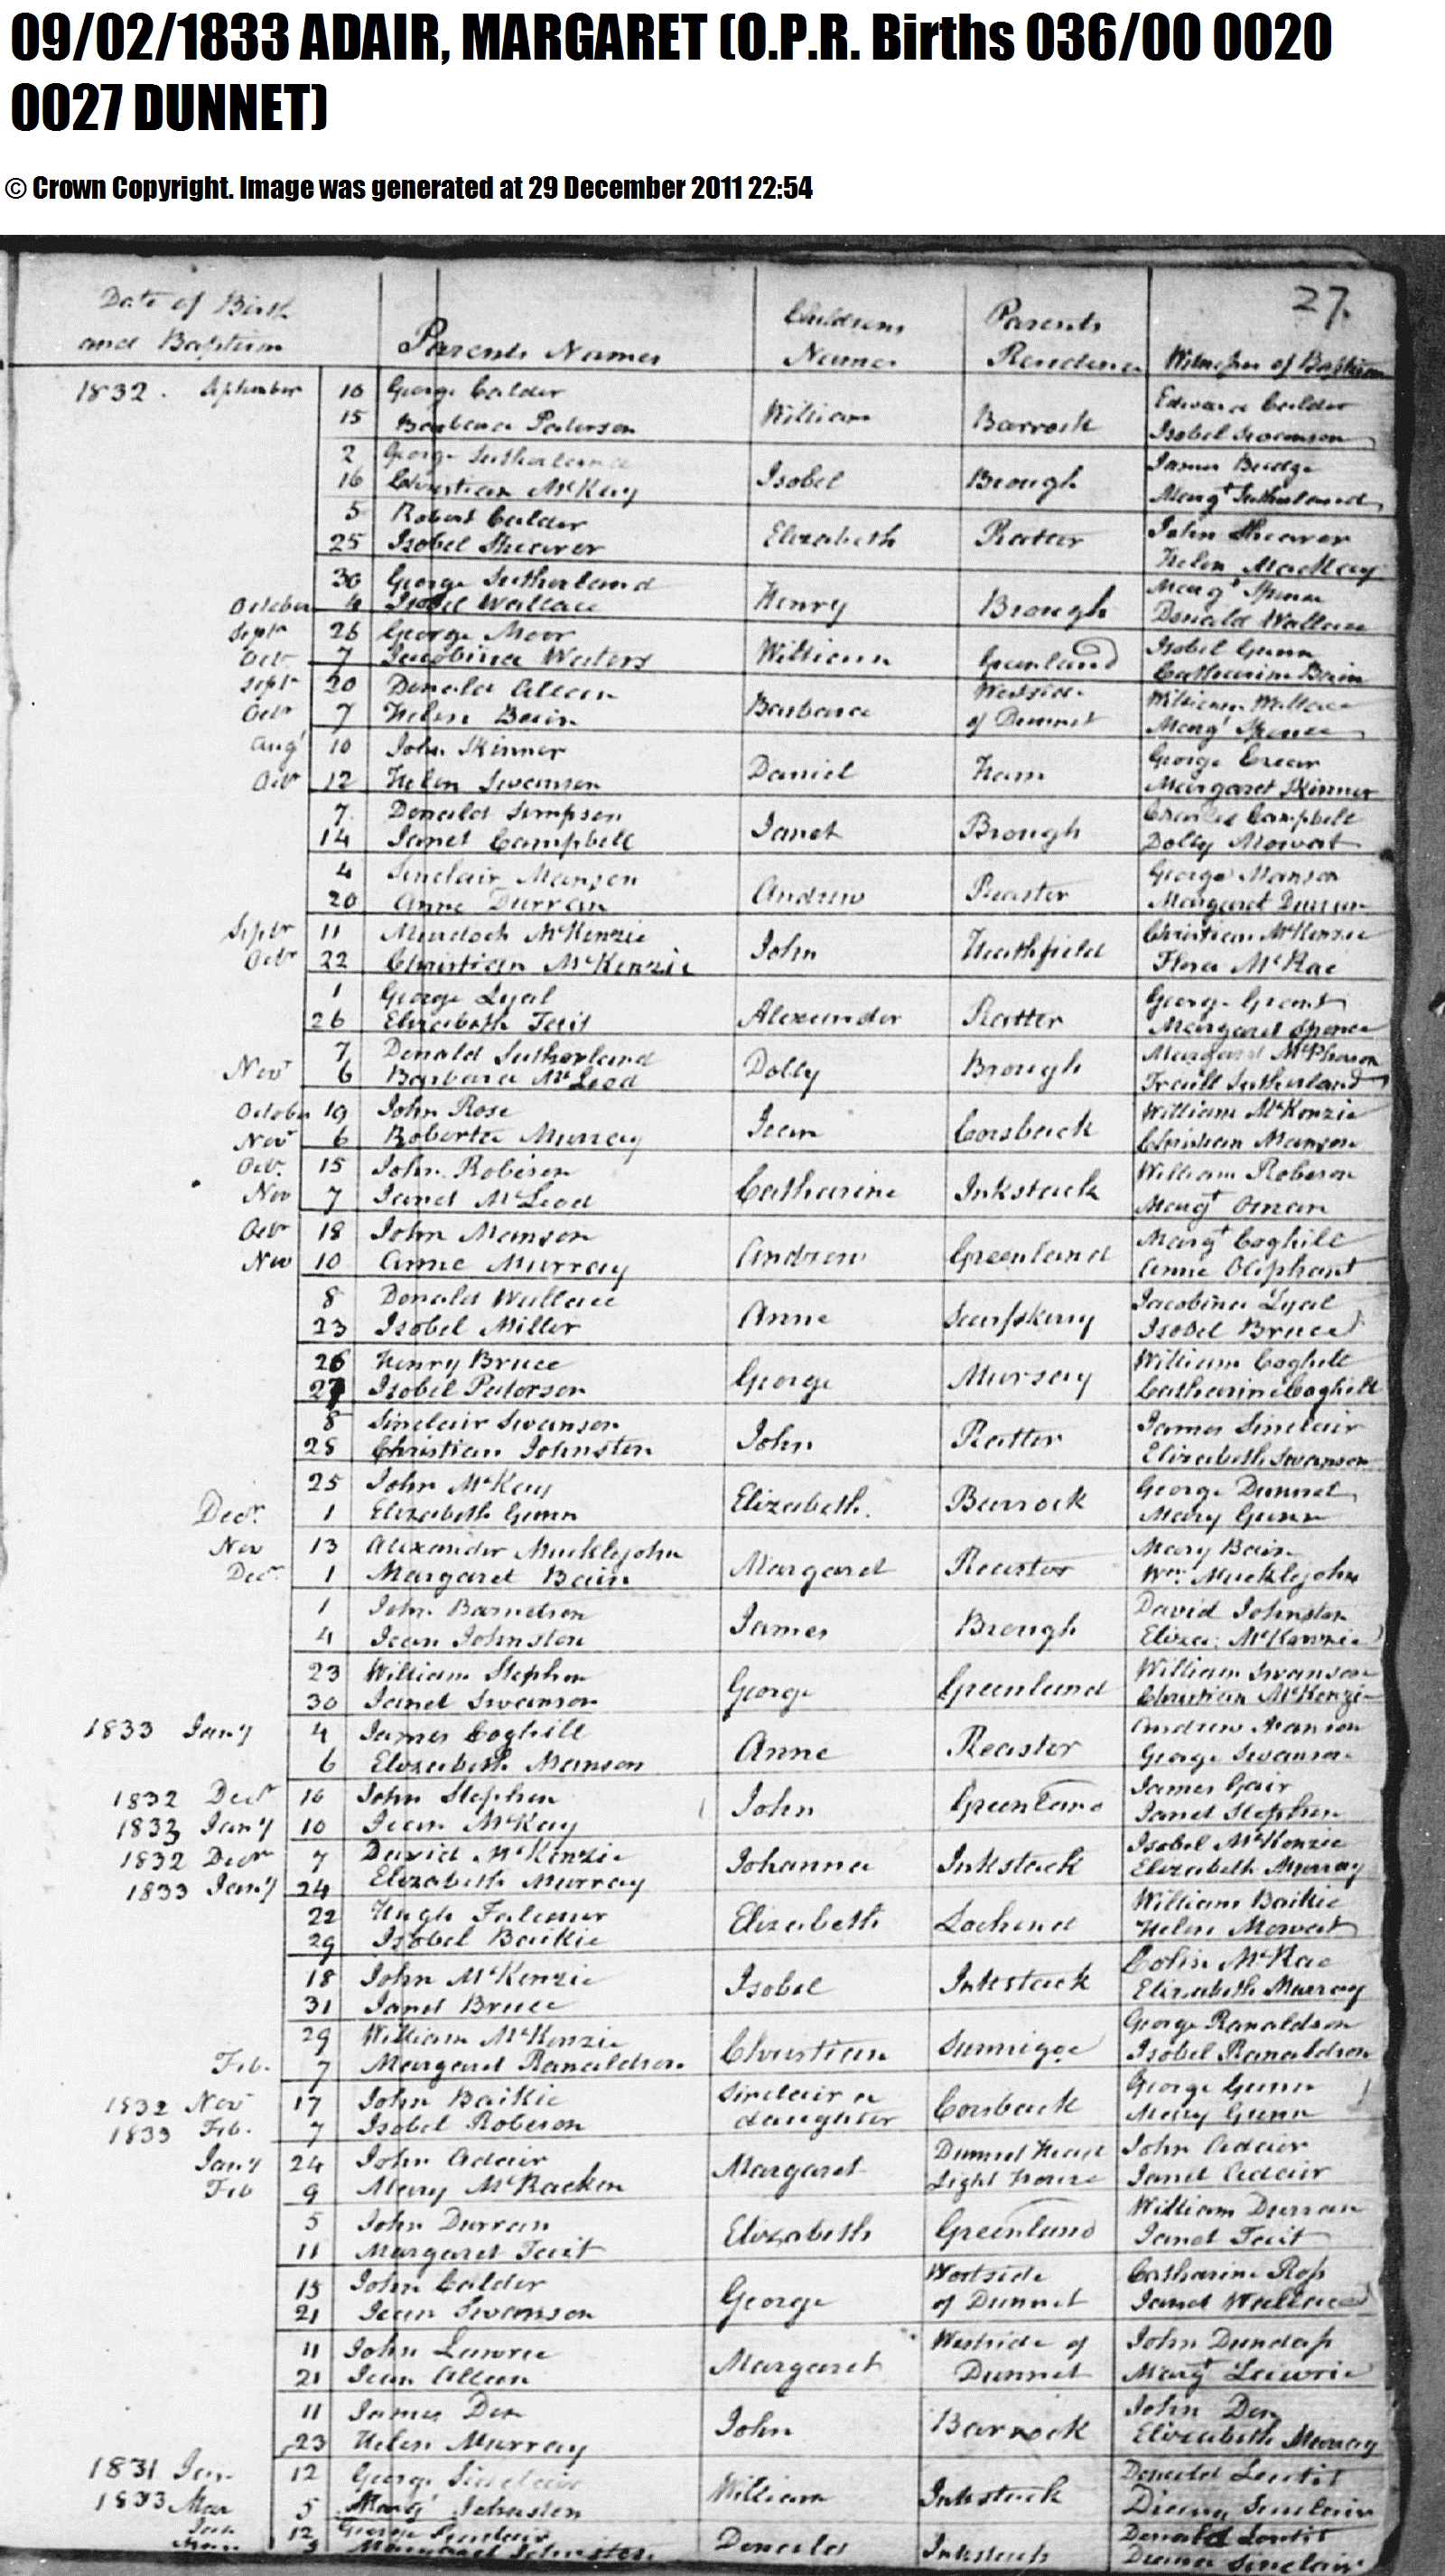 09/02/1833 ADAIR, MARGARET (O.P.R. Births 036/00 0020
0027 DUNNET)
© Crown Copyright. Image was generated at 29 December 2011 22:54
27.
Date of Birth
and Baptism Parents Names Childrens Names Parents Residence Witnesses of Baptism
1832. September 10 George Calder William Barrock Edward Calder
15 Barbara Paterson Isobel Swanson
2 George Sutherland Isobel Brough James Budge
16 Christian McKay Margt Sutherland
5 Robert Calder Elizabeth Ratter John Shearer
25 Isobel Shearer Helen MacKay
30 George Sutherland Henry Brough Margt Spence
October 4 Isobel Wallace Donald Wallace
Septr 26 George Moor William Greenland Isobel Gunn
Octr 7 Jacobina Waters Catharine Bain
Septr 20 Donald Allan Barbara Westside William Wallace
Octr 7 Helen Bain of Dunnet Margt Spence
Augt 10 John Skinner Daniel Ham George
Octr 12 Helen Swanson Margaret Skinner
7 Donald Simpson Janet Brough Charles Campbell
14 Janet Campbell Dolly Mowat
4 Sinclair Manson Andrew Reaster George Manson
20 Anne Durran Margaret Durran
Septr 11 Murdoch McKenzie John Heathfield Christian McKenzie
Octr 22 Christian McKenzie Flora McRae
1 George Lyal Alexander Ratter George Grant
26 Elizabeth Tait Margaret Spence
7 Donald Sutherland Dolly Brough Margaret McPherson
Novr 6 Barbara McLeod Traill Sutherland
October 19 John Rose Jean Corsback William McKenzie
Novr 6 Roberta Murray Christian Manson
Oct. 15 John Robison Catharine Inkstack William Robeson
Nov 7 Janet McLeod Margt Oman
Octr 18 John Manson Andrew Greenland Margt Coghill
Nov 10 Anne Murray Anne Oliphant
8 Donald Wallace Anne Scarfskerry Jacobina Lyal
23 Isobel Miller Isobel Bruce
26 Henry Bruce George Mursay William Coghill
27 Isobel Paterson Catharine Coghill
8 Sinclair Swanson John Ratter James Sinclair
28 Christian Johnston Elizabeth Swanson
25 John McKay Elizabeth. Barrock George Dunnet
Decr. 1 Elizabeth Gunn Mary Gunn
Nov 13 Alexander Mucklejohn Margaret Reaster Mary Bain
Decr. 1 Margaret Bain Wm. Mucklejohn
1 John Barnetson James Brough David Johnston
4 Jean Johnston Eliza: McKenzie
23 William Stephen George Greenland William Swanson
30 Janet Swanson Christian McKenzie
1833 Jany 4 James Coghill Anne Reaster Andrew Manson
6 Elizabeth Manson George Swanson
1832 Decr 16 John Stephen John Greenland James Gair
1833 Jany 10 Jean McKay Janet Stephen
1832 Decr 7 David McKenzie Johanna Inkstack Isobel McKenzie
1833 Jany 24 Elizabeth Murray Elizabeth Murray
22 Hugh Falconer Elizabeth Lochend William Baikie
29 Isobel Baikie Helen Mowat
18 John McKenzie Isobel Inkstack Colin McRae
31 Janet Bruce Elizabeth Murray
29 William McKenzie Christian Sunnigoe George Ranaldson
Feb. 7 Margaret Ranaldson Isobel Ranaldson
1832 Nov 17 John Baikie Sinclair a Corsback George Gunn
1833 Feb. 7 Isobel Robeson daughter Mary Gunn
Jany 24 John Adair Margaret Dunnet Head John Adair
Feb 9 Mary McRacken Light House Janet Adair
5 John Durran Elizabeth Greenland William Durran
11 Margaret Tait Janet Tait
15 John Calder George Westside Catharine Ross
21 Jean Swanson of Dunnet Janet Wallace
11 John Lawrie Margaret Westside of John Dundass
21 Jean Allan Dunnet Margt Lawrie
11 James Den John Barrock John Den
23 Helen Murray Elizabeth Murray
1831 Jan 12 George Sinclair William Inkstack Donald
1833 Mar 5 Margt Johnston Diana Sinclair
Jan 12 George Sinclair Donald Inkstack Donald
Mar 5 Margaret Johnston Diana Sinclair